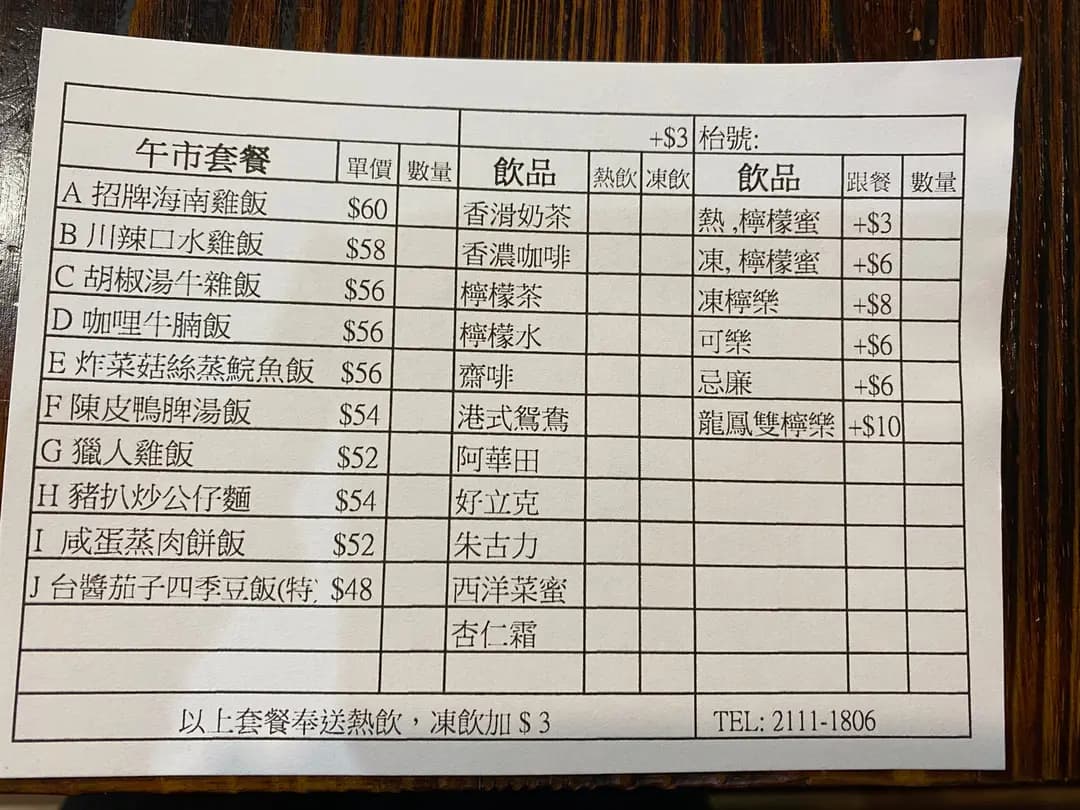 +$3 枱號:
午市套餐 單價 數量 飲品 熱飲 凍飲 飲品 跟餐 數量
A 招牌海南雞飯 $60 香滑奶茶 熱 ,檸檬蜜 +$3
B 川辣口水雞飯 $58 香濃咖啡 凍, 檸檬蜜 +$6
C 胡椒湯牛雜飯 $56 檸檬茶 凍檸樂 +$8
D 咖哩牛腩飯 $56 檸檬水 可樂 +$6
E 炸菜菇絲蒸鯇魚飯 $56 齋啡 忌廉 +$6
F 陳皮鴨脾湯飯 $54 港式鴛鴦 龍鳳雙檸樂 +$10
G 獵人雞飯 $52 阿華田
H 豬扒炒公仔麵 $54 好立克
I 咸蛋蒸肉餅飯 $52 朱古力
J 台醬茄子四季豆飯(特 $48 西洋菜蜜
杏仁霜
以上套餐奉送熱飲，凍飲加 $ 3 TEL: 2111-1806